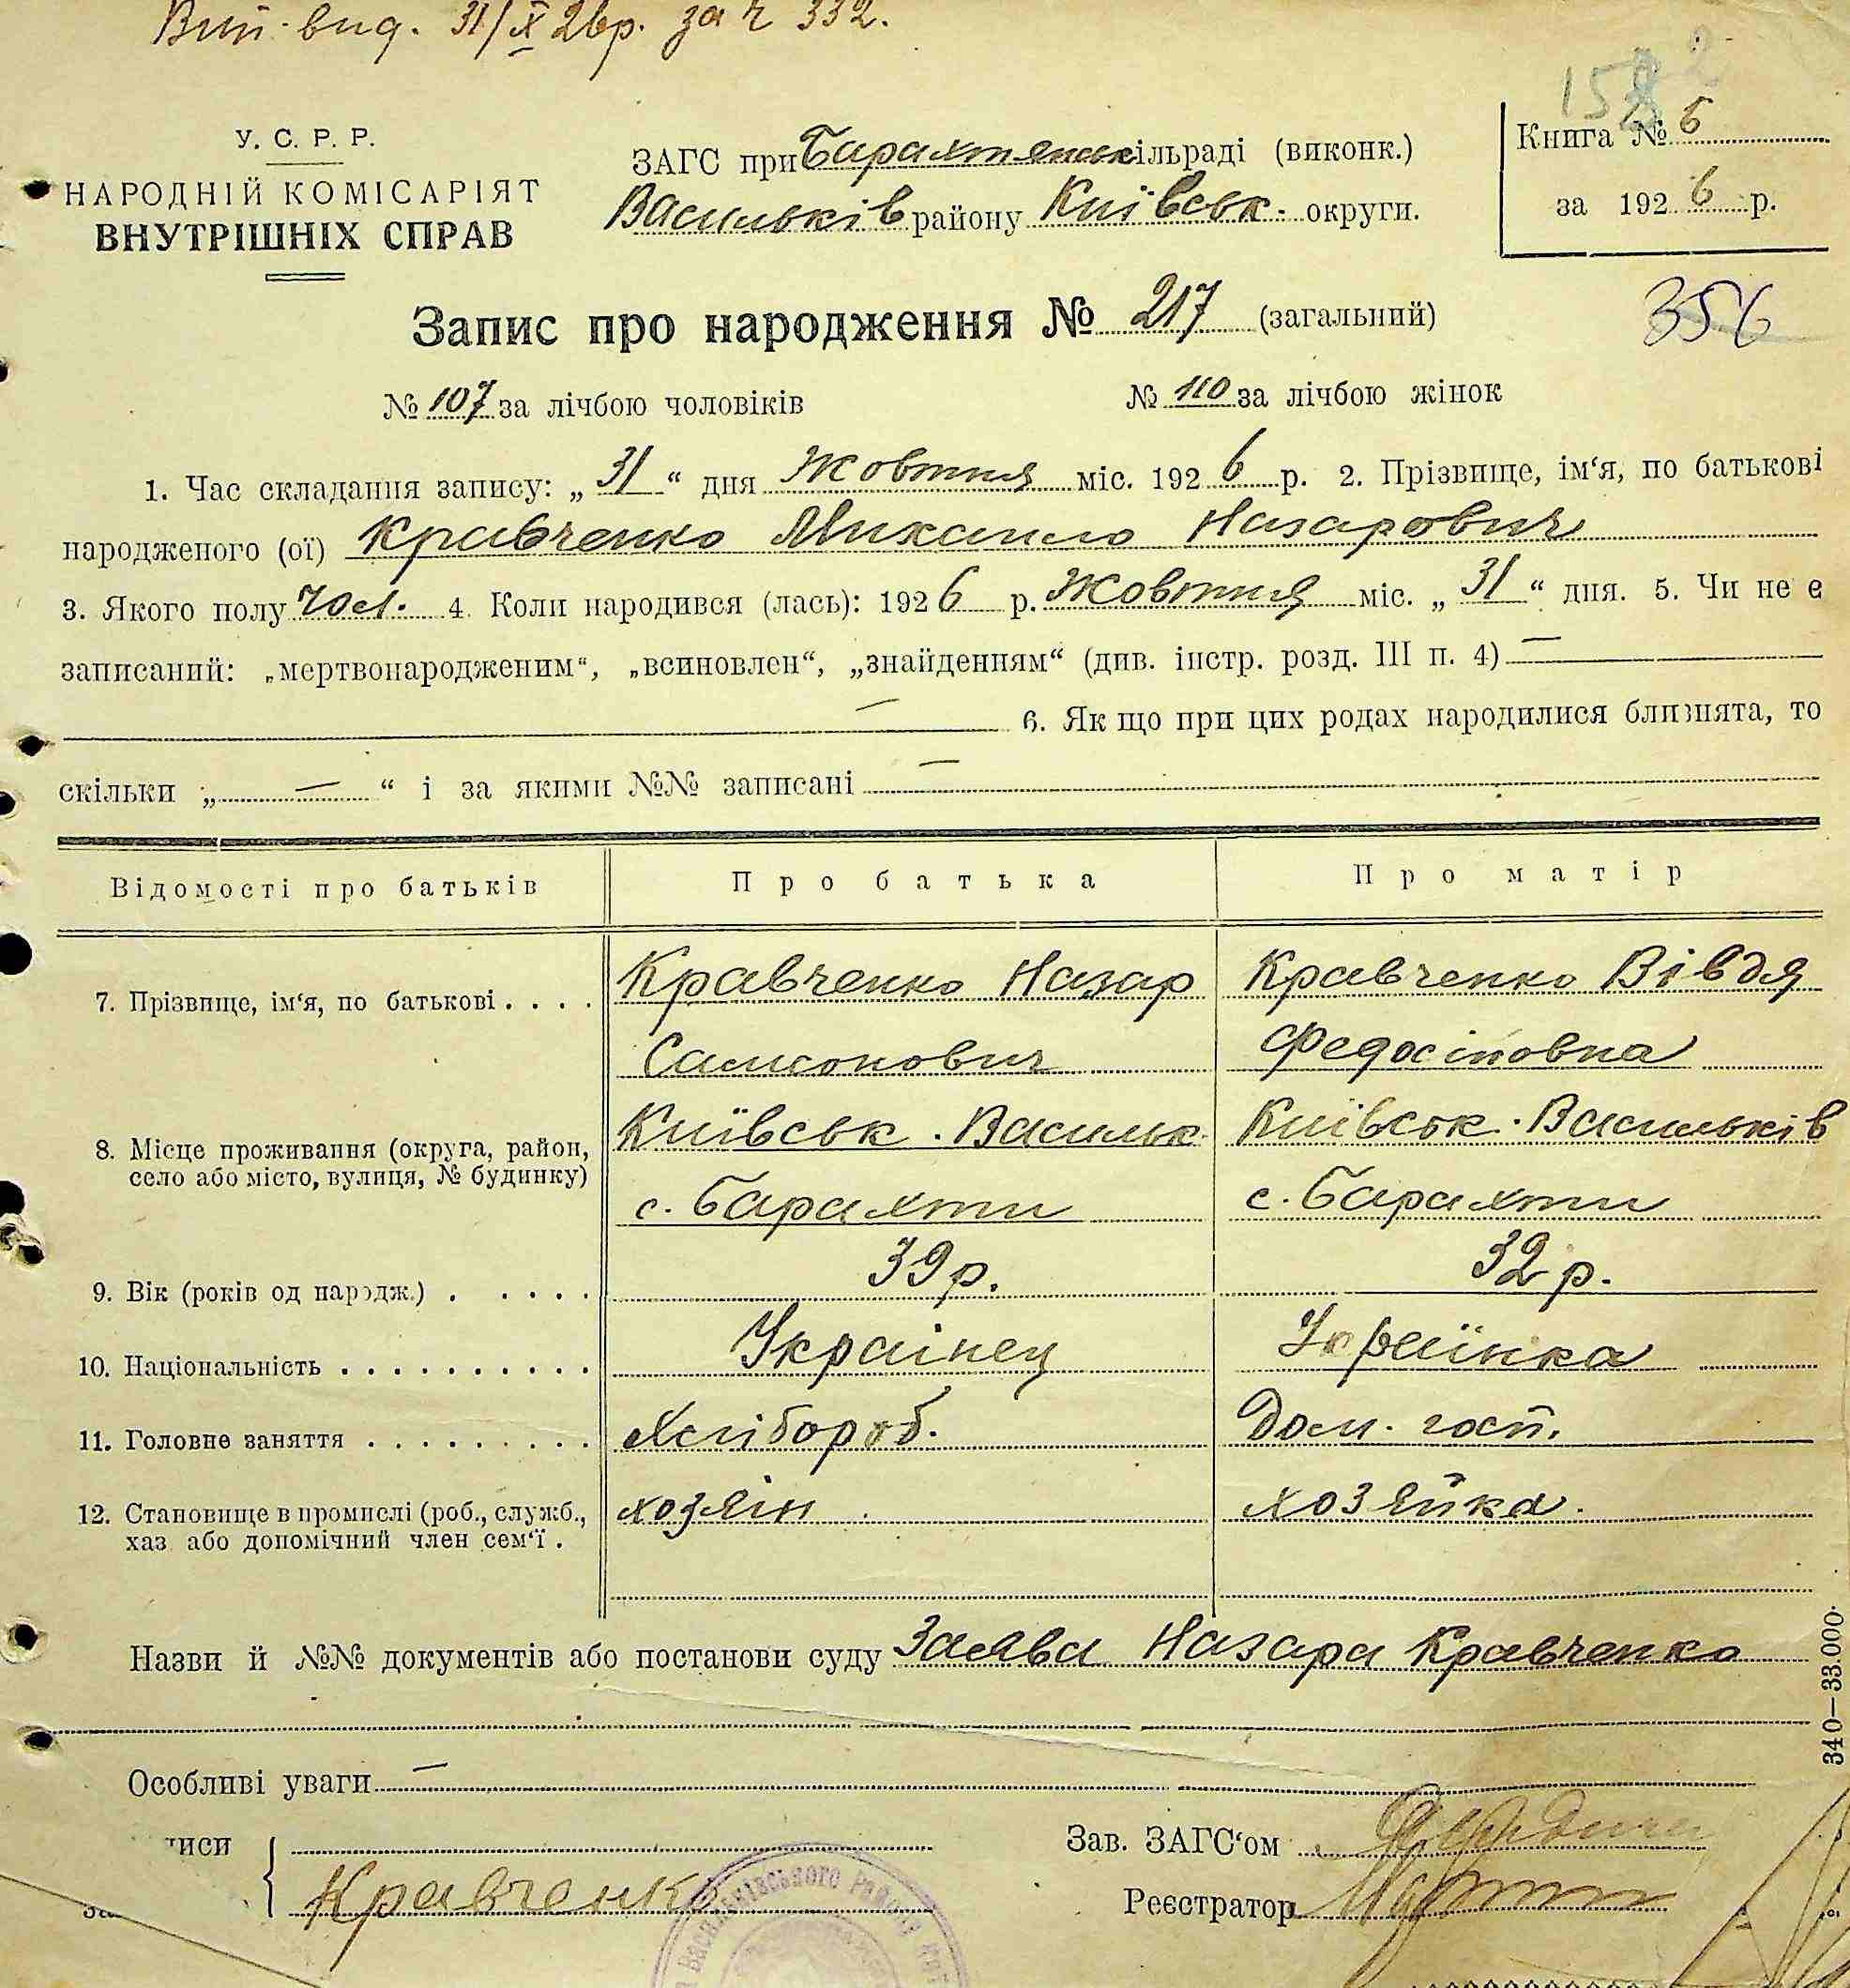 Вип. вид. 31/X 26р. за ч 332.
158 2
У. С. Р. Р.
НАРОДНІЙ КОМІСАРІЯТ
ВНУТРІШНІХ СПРАВ
ЗАГС при Барахтянск ільраді (виконк.)
Васильків району Київськ. округи.
Книга № 6
за 192 6 р.
Запис про народження № 217 (загальний)
356
№ 107 за лічбою чоловіків № 110 за лічбою жінок
1. Час складання запису: „ 31 “ дня Жовтня міс. 192 6 р. 2. Прізвище, ім‘я, по батькові
народженого (ої) Кравченко Михаило Назарович
3. Якого полу чол. 4. Коли народився (лась): 192 6 р. Жовтня міс. „ 31 “ дня. 5. Чи не є
записаний: „мертвонародженим“, „всиновлен“, „знайденням“ (див. інстр. розд. III п. 4) —
— 6. Як що при цих родах народилися близнята, то
скільки „ — “ і за якими №№ записані —
Відомості про батьків Про батька Про матір
7. Прізвище, ім‘я, по батькові . . . . Кравченко Назар Кравченко Вівдя
Самсонович Федосіповна
8. Місце проживання (округа, район, Київськ. Васильк. Київськ. Васильків
село або місто, вулиця, № будинку) с. Барахти с. Барахти
9. Вік (років од народж.) . . . . . 39 р. 32 р.
10. Національність . . . . . . . . . . Українец Українка
11. Головне заняття . . . . . . . . . Хлібороб. Дом. госп.
12. Становище в промислі (роб., служб., хозяін хозяйка.
хаз або допомічний член сем‘ї .
Назви й №№ документів або постанови суду Заява Назара Кравченка
340—33.000.
Особливі уваги —
иси
Зав. ЗАГС‘ом
Кравченко
Реєстратор
Васильківського району